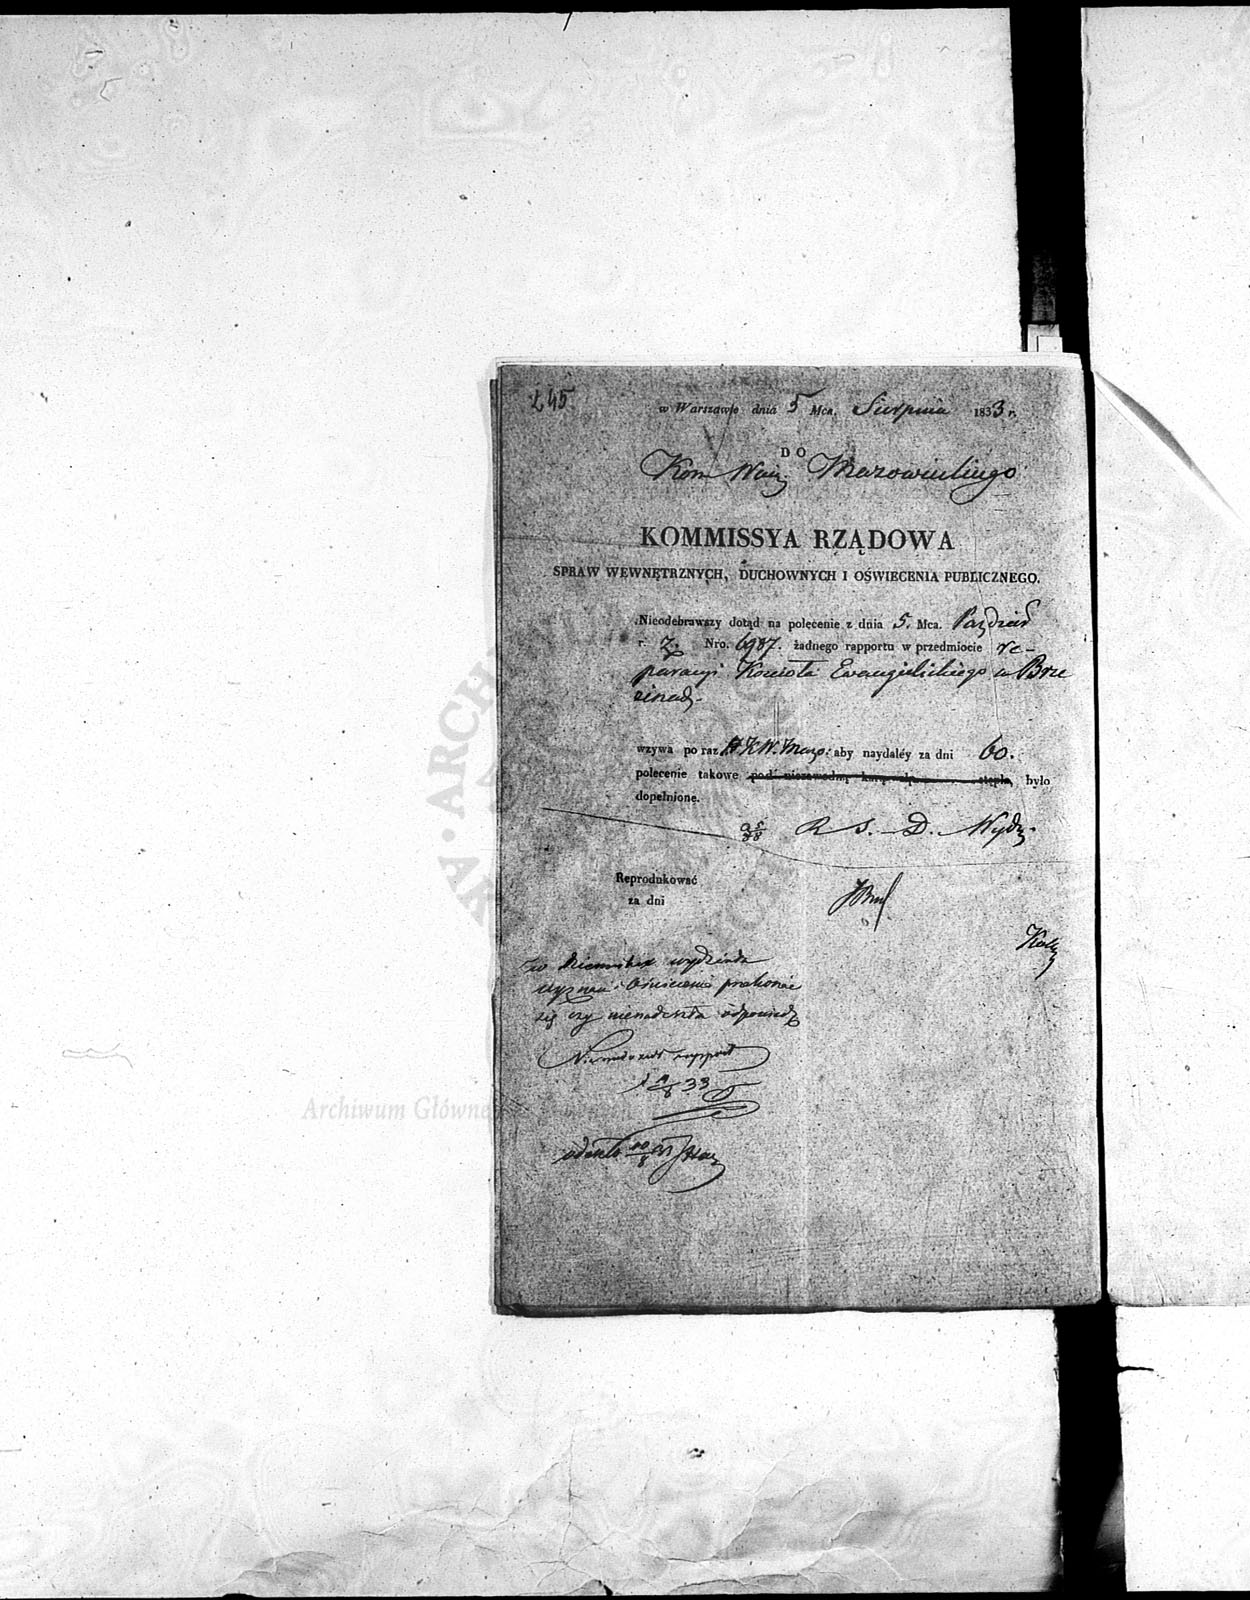 245
w Warszawie dnia 5 Mca. Sierpnia 1833 r.
DO
Kom Woj. Mazowieckiego
KOMMISSYA RZĄDOWA
SPRAW WEWNĘTRZNYCH, DUCHOWNYCH I OŚWIECENIA PUBLICZNEGO.
Nieodebrawszy dotąd na polęcenie z dnia 5. Mca. Paździer
r. z. Nro. 6987. żadnego rapportu w przedmiocie re-
paracyi Kościoła Ewangielickiego w Brze
zinach.
wzywa po raz K.W. Mazo: aby naydaléy za dni 60.
polecenie takowe pod niezawodną karą było
dopełnione.
R S. D. Wydz.
Reprodukować
za dni
w Dzienniku wydziału
wyznań i Oświecenia przekonać
się czy nienadeszła odpowiedź
Nienadszedł rapport
33
Archiwum Główne